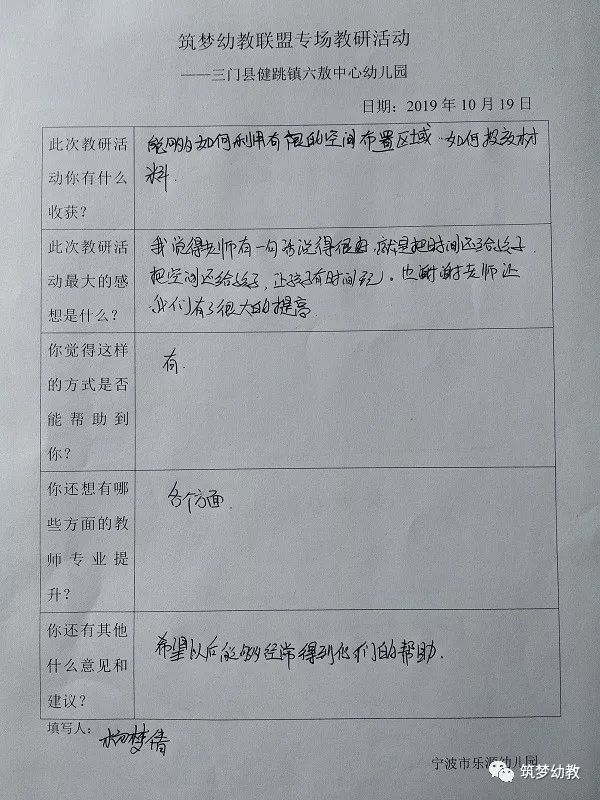 筑梦幼教联盟专场教研活动
——三门县健跳镇六敖中心幼儿园
日期：2019年10月19日
此次教研活
动你有什么
收获？
能够如何利用有限的空间布置区域．如何投放材
料．
此次教研活
动最大的感
想是什么？
我觉得老师有一句话说得很好，就是把时间还给孩子，
把空间还给孩子，让孩子有时间玩。也谢谢老师让
我们有了很大的提高．
你觉得这样
的方式是否
能帮助到
你？
有．
你还想有哪
些方面的教
师专业提
升？
各个方面．
你还有其他
什么意见和
建议？
希望以后能够经常得到你们的帮助．
填写人：
梦倩
宁波市乐源幼儿园
筑梦幼教